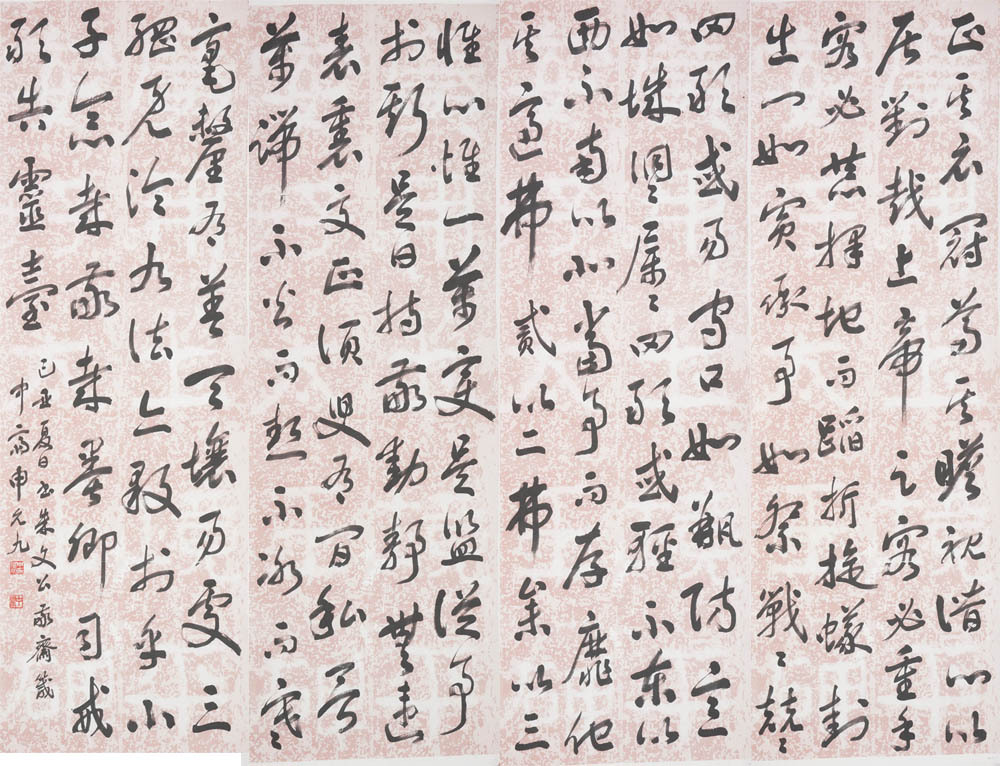 正其衣冠尊其瞻視潛心以
居對越上帝足容必重手
容必恭擇地而蹈折旋蟻封
出門如賓承事如祭戰〻兢〻
罔敢或易守口如甁防意
如城洞〻屬〻罔敢或輕不東以
西不南以北當事而存靡他
其適弗貳以二弗參以三
惟心惟一萬變是監從事
於斯是曰持敬動靜無違
表裏交正須臾有間私欲
萬端不火而熱不冰而寒
毫釐有差天壤易處三
綱旣淪九法亦斁於乎小
子念哉敬哉墨卿司戒
敢告靈臺
己丑夏日書朱文公敬齋箴
中齋申允九